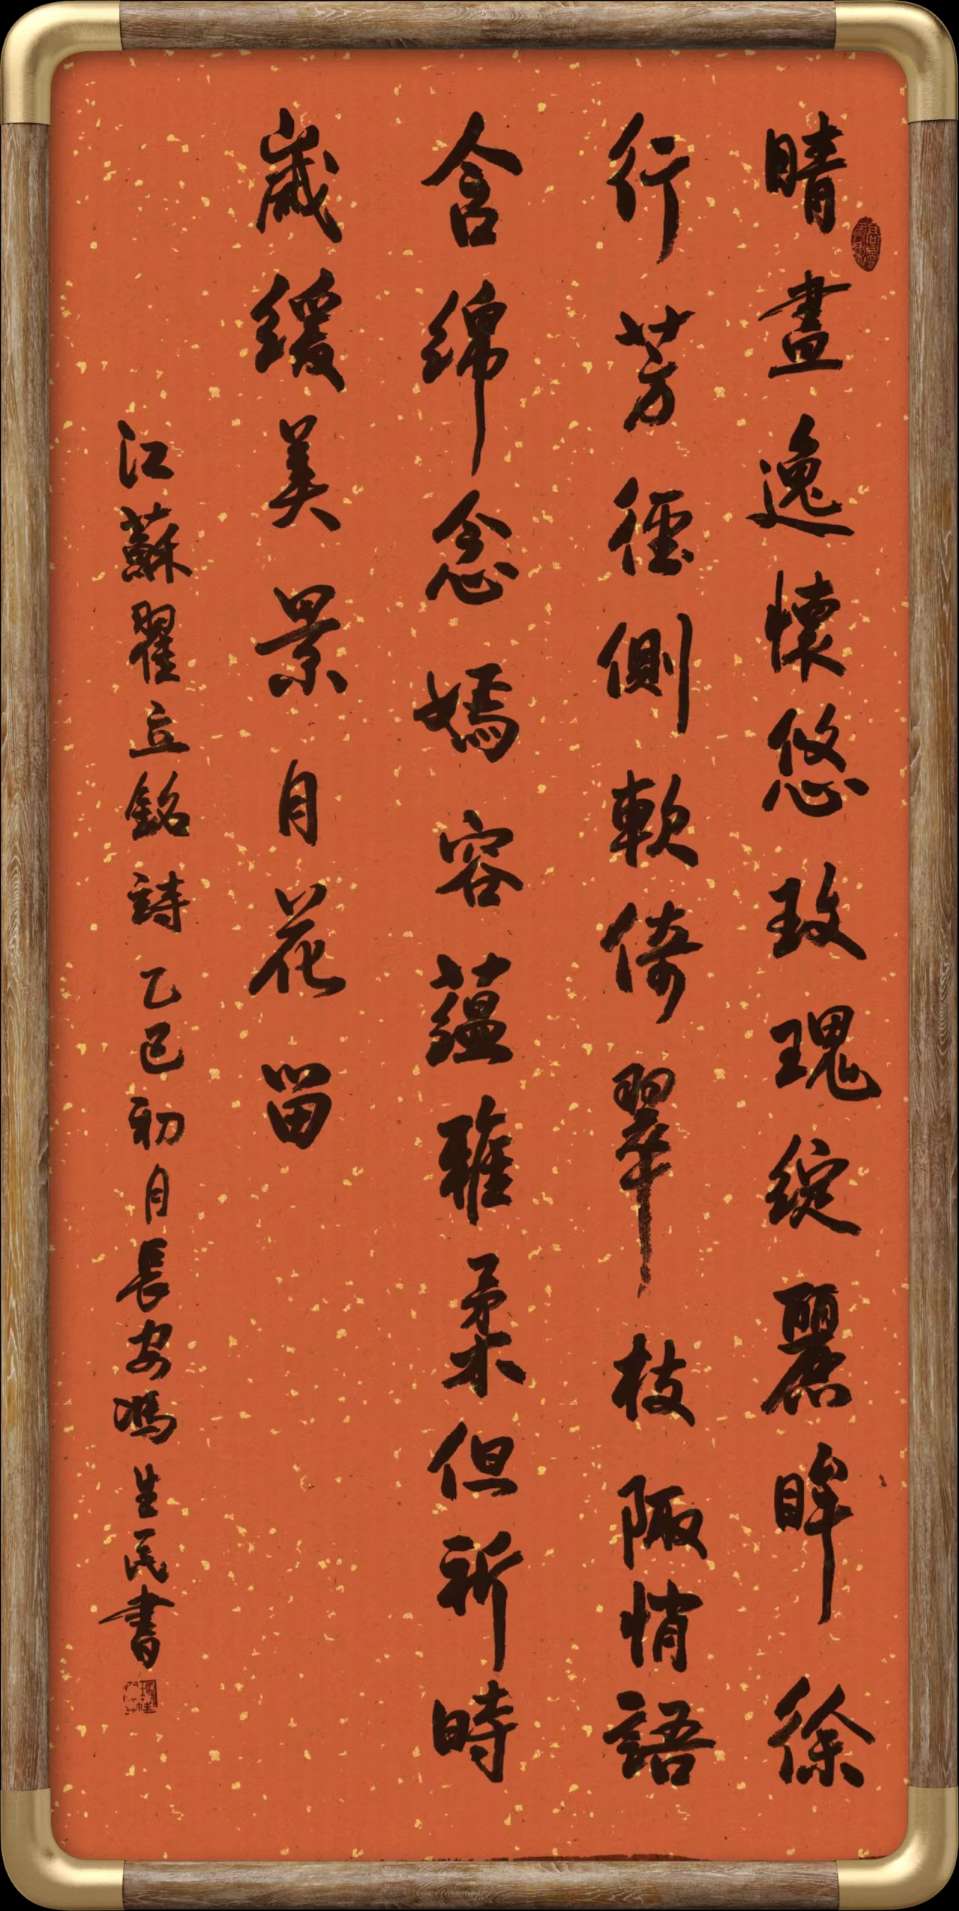 晴晝逸懷悠玫瑰綻麗眸徐
行芳徑側軟倚翠枝陬悄語
含綿念嫣容蘊雅柔但祈時
歲緩美景月花留
江蘇翟立銘詩乙巳初月長安馮生民書